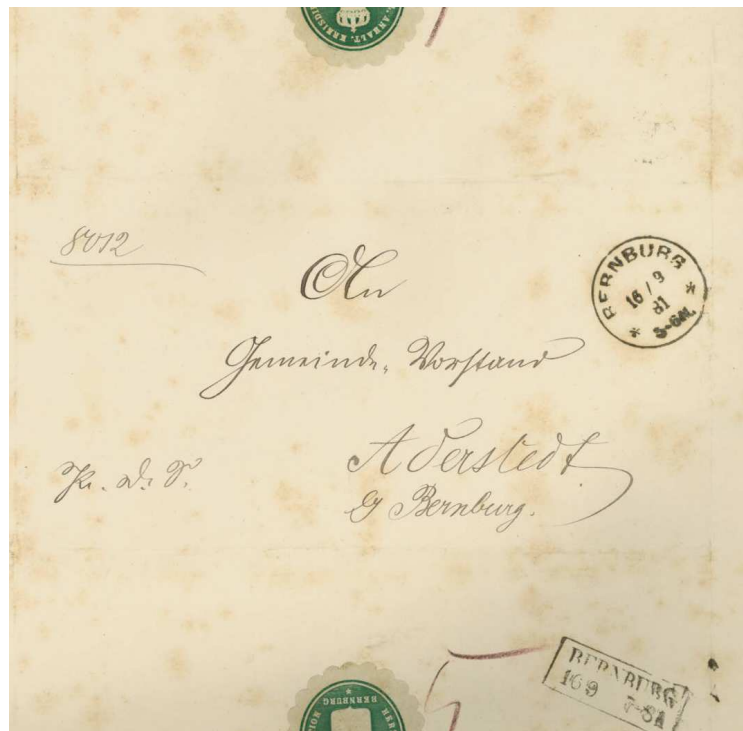 ANHALT. KREISDI
8012
An
Gemeinde-Vorstand
Aderstedt
b/ Bernburg.
BERNBURG
16 / 9
81
5-6N.
BERNBURG
16 9
BERNBURG